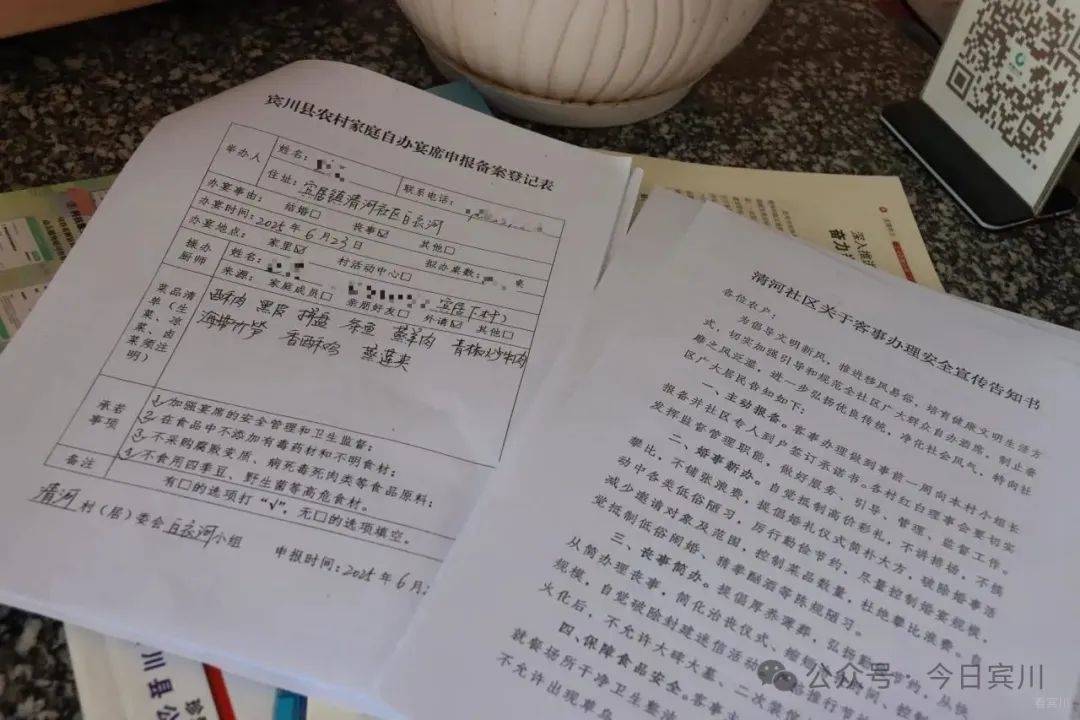 宾川县农村家庭自办宴席申报备案登记表
举办人
姓名：
联系电话：
住址：宾居镇清河社区白衣河
办宴事由： 结婚□ 丧事☑ 其他□
办宴时间：2025年6月23日 拟办桌数： 桌
办宴地点： 家里☑ 村活动中心□
操办厨师
姓名： 宾居下村）
来源： 家庭成员□ 亲朋好友□ 外请☑ 其他□
菜品清单（生菜、凉菜、卤菜须注明）
酥肉 黑 拼盘 鱼 蒸羊肉 青椒炒牛肉
海 竹笋 香酥鸡 莲夹
承若事项
1 加强宴席的安全管理和卫生监督；
2 在食品中不添加有毒药材和不明食材；
3 不采购腐败变质、病死毒死肉类等食品原料；
4 不食用四季豆、野生菌等高危食材。
备注
有□的选项打“√”，无□的选项填空。
清河村（居）委会白衣河小组 申报时间：2025年6月2
清河社区关于客事办理安全宣传告知书
各位农户：
为倡导文明新风，推进移风易俗，培育健康文明生活方
式，切实加强引导和规范全社区广大群众自办酒席，制止奢
靡之风泛滥，进一步弘扬优良传统，净化社会风气，特向社
区广大居民告知如下：
一、主动报备。客事办理做到事前一周向本村小组长
报备并社区专人到户签订承诺书。各村红白理事会要切实
发挥监督管理职能，做好服务、引导、管理、监督工作。
二、婚事新办。自觉抵制高价彩礼，不讲排场，不搞
攀比，不铺张浪费，提倡婚礼仪式简朴大方，破除婚事活
动中各类低俗陋习，厉行勤俭节约，尽量控制婚宴规模，
减少邀请对象及范围，控制菜品数量，杜绝攀比浪费。自
觉抵制低俗闹婚、猜拳酗酒等陈规陋习。
三、丧事简办。提倡厚养薄葬，弘扬勤 约，从快
从简办理丧事，简化治丧仪式、缩短 时间、控制
规模，自觉破除封建迷信活动
火化后，不允许大碑大墓、二次装
四、保障食品安全。客事
就餐场所干净卫生整洁
不允许出现单
深入推
奋力
川县公
公众号 · 今日宾川
看宾川